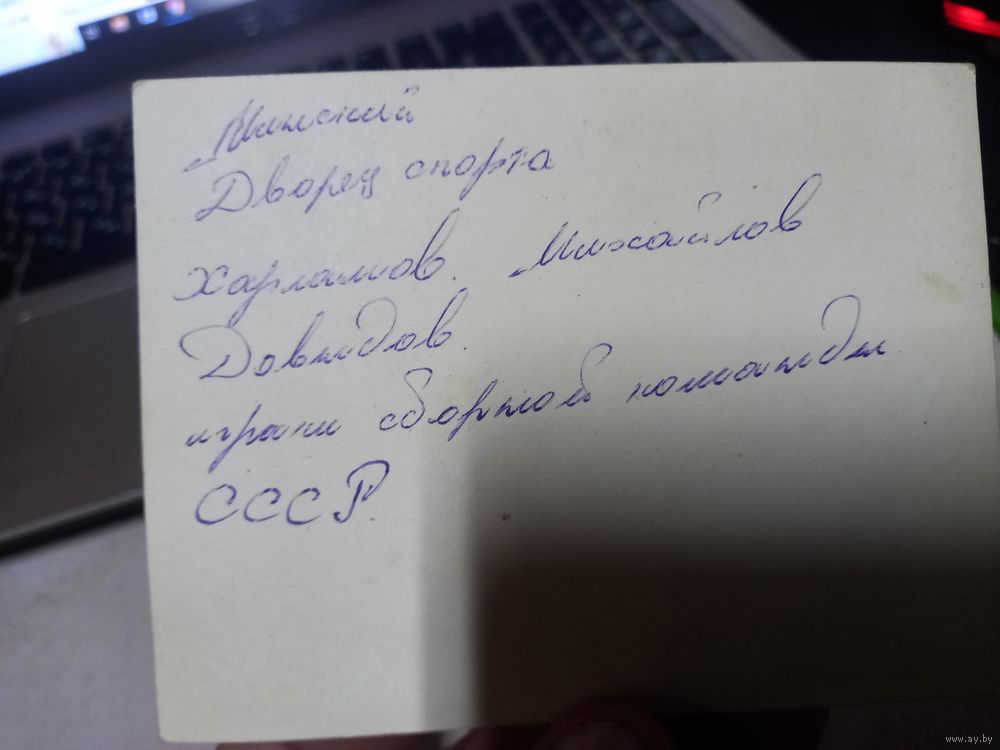 Минский
Дворец спорта
Харламов. Михайлов
Довыдов.
играки сборной команды
СССР.
www.ay.by